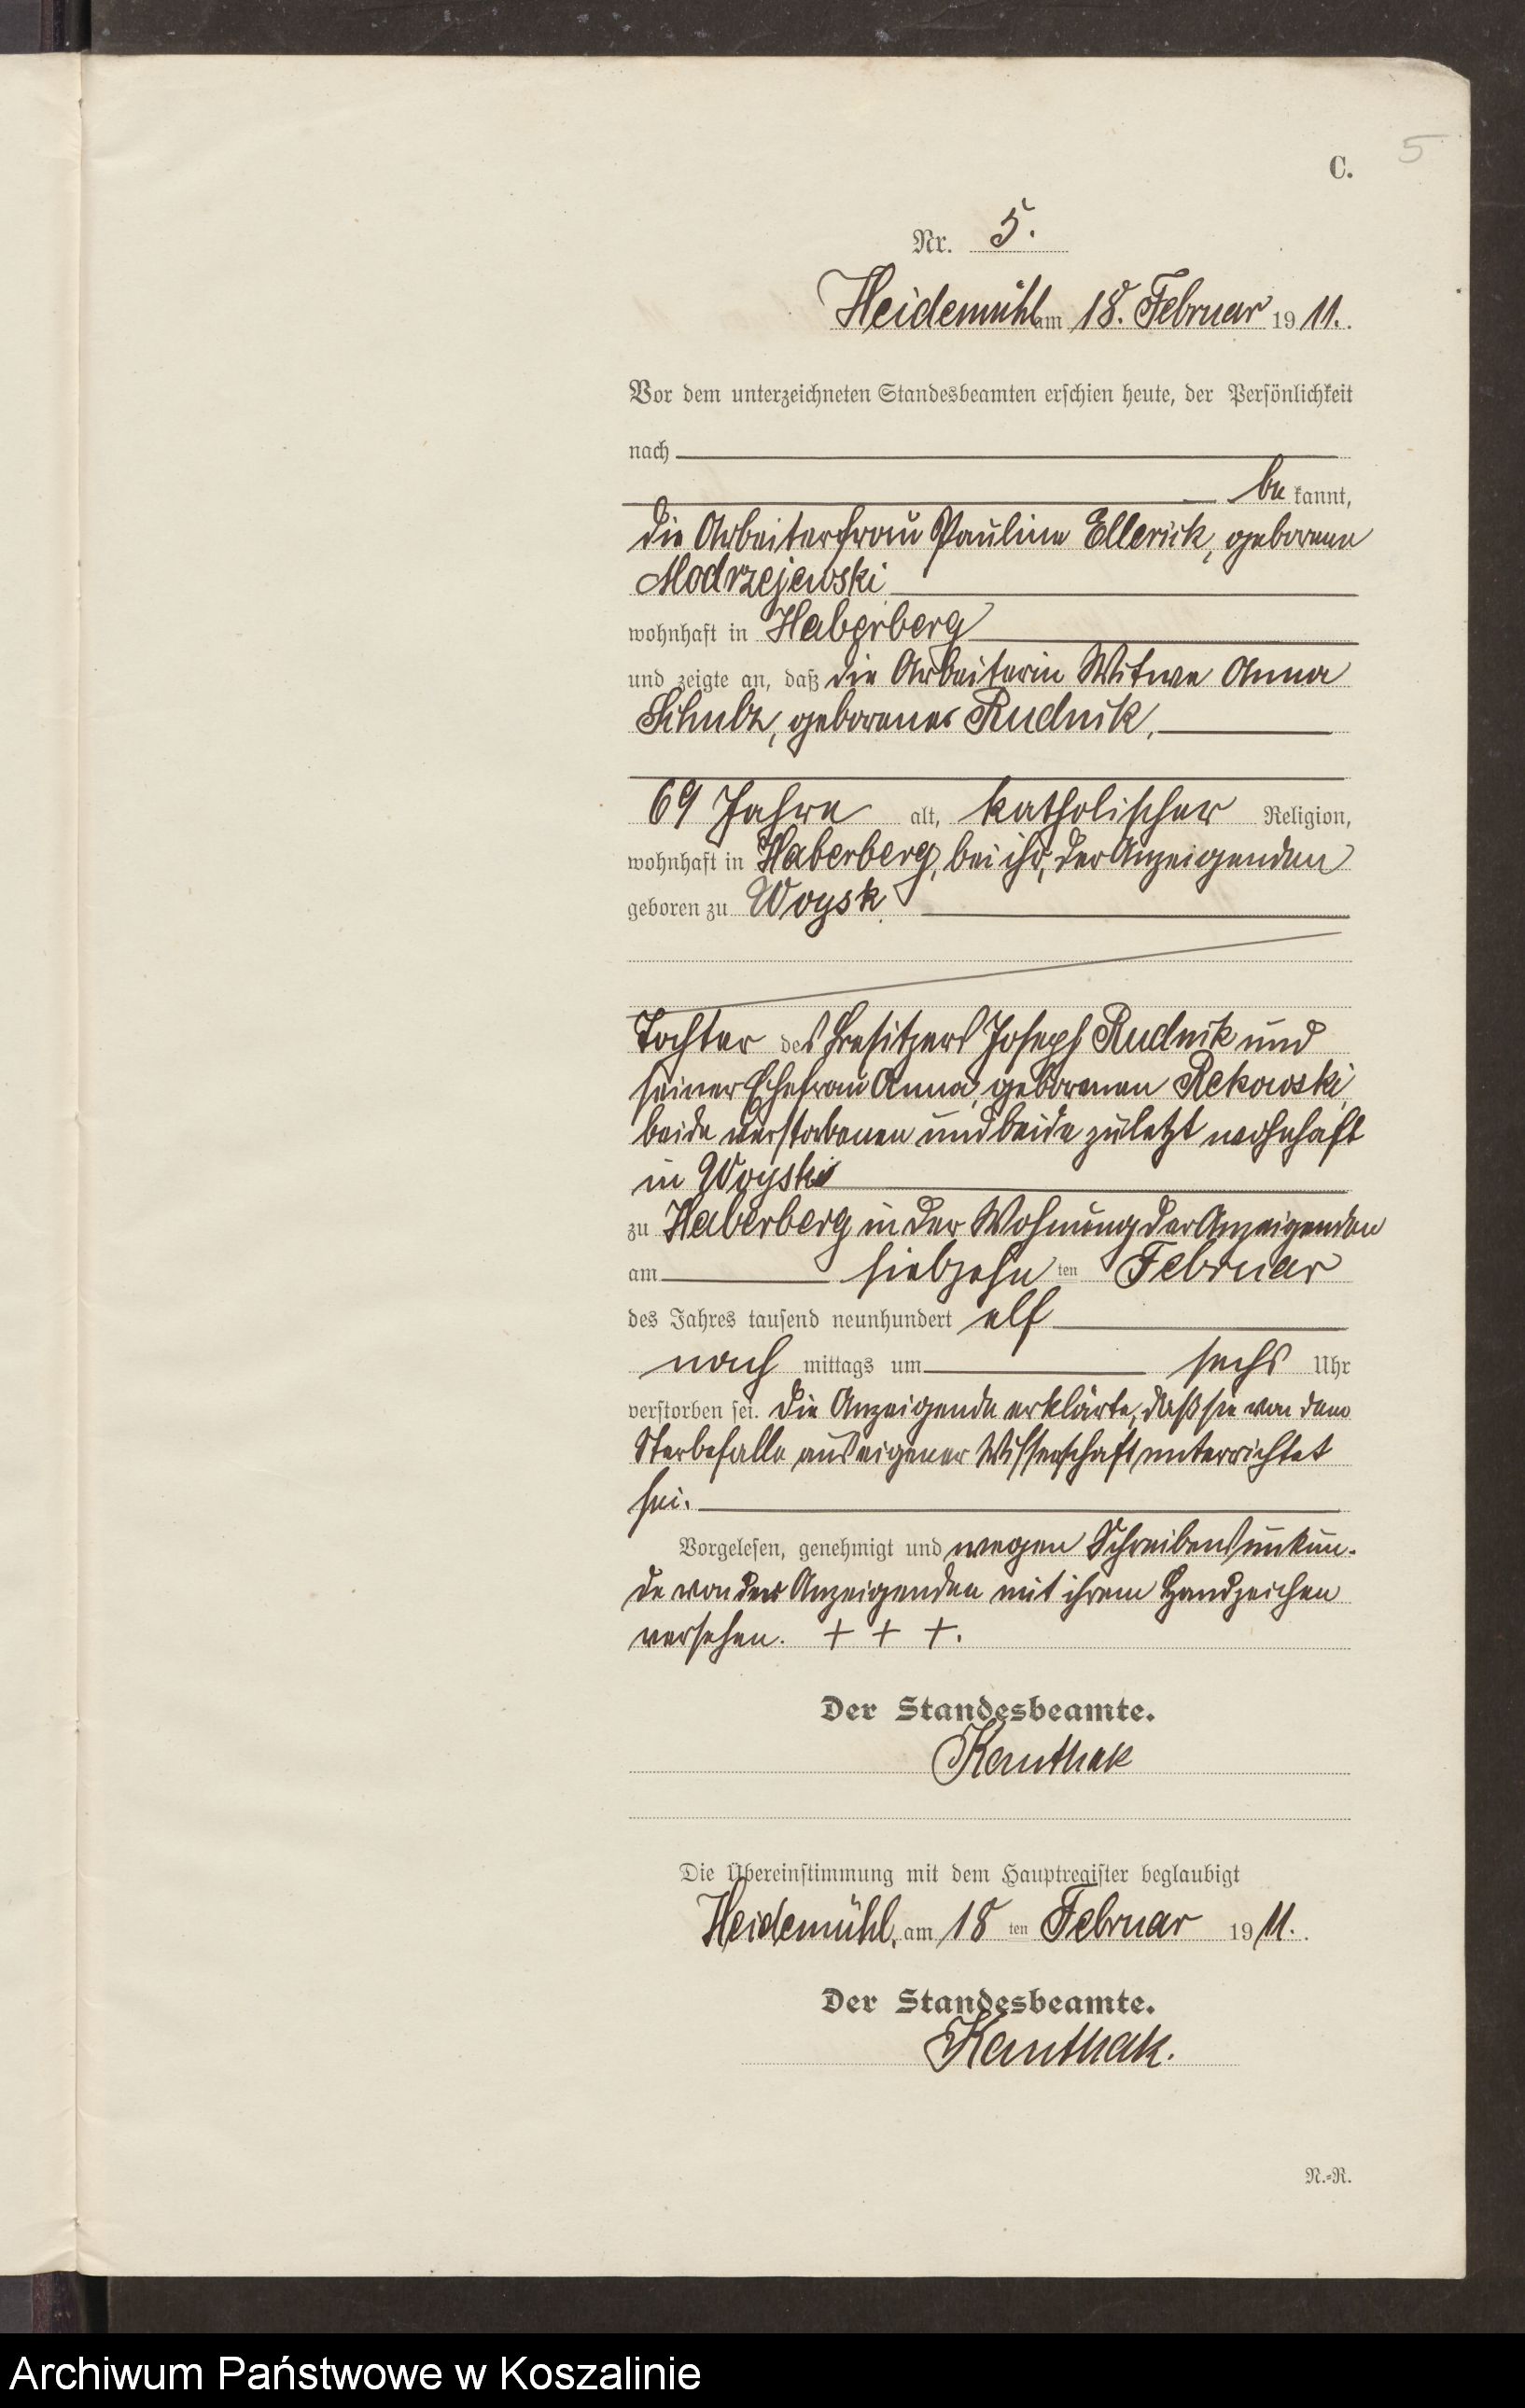 5
C.
Nr. 5.
Heidemühl am 18. Februar 1911.
Vor dem unterzeichneten Standesbeamten erschien heute, der Persönlichkeit
nach
bekannt,
die Arbeiterfrau Pauline Ellerick, geborene
Modrzejewski
wohnhaft in Haberberg
und zeigte an, daß die Arbeiterin Witwe Anna
Schulz, geborene Rudnik,
69 Jahre alt, katholischer Religion,
wohnhaft in Haberberg, bei ihr, der Anzeigenden
geboren zu Woysk
Tochter des Besitzers Joseph Rudnik und
seiner Ehefrau Anna, geborenen Rekowski,
beide verstorbenen und beide zuletzt wohnhaft
in Woysk
zu Haberberg in der Wohnung der Anzeigenden
am siebzehnten Februar
des Jahres tausend neunhundert elf
nachmittags um sechs Uhr
verstorben sei. Die Anzeigende erklärte, daß sie von dem
Sterbefalle aus eigener Wissenschaft unterrichtet
sei.
Vorgelesen, genehmigt und wegen Schreibensunkun-
de von der Anzeigenden mit ihrem Handzeichen
versehen. + + +.
Der Standesbeamte.
Kanthak
Die Übereinstimmung mit dem Hauptregister beglaubigt
Heidemühl, am 18ten Februar 1911.
Der Standesbeamte.
Kanthak.
N.=R.
Archiwum Państwowe w Koszalinie